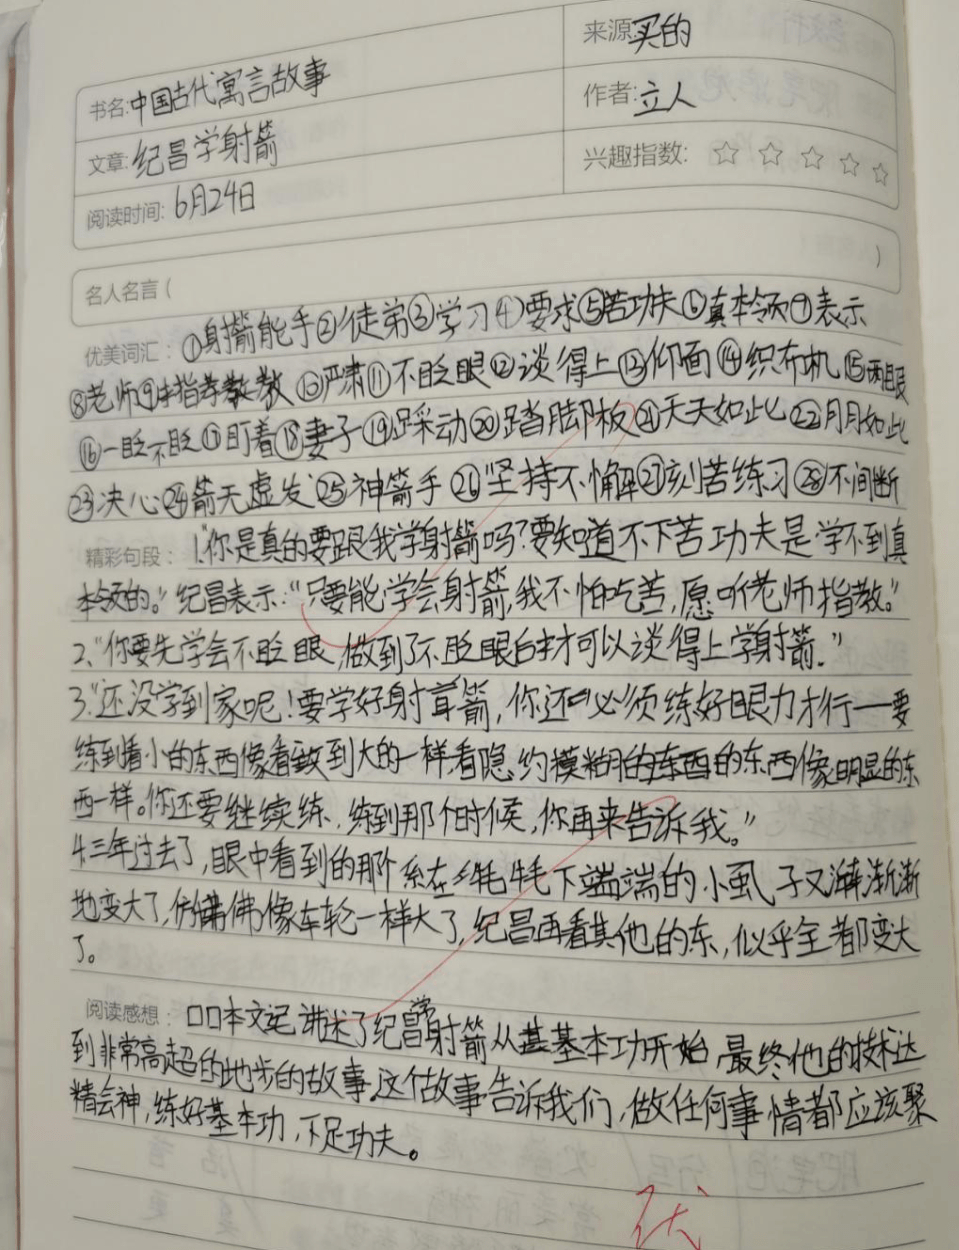 来源:买的
书名:中国古代寓言故事
作者:立人
文章:纪昌学射箭
兴趣指数: ☆ ☆ ☆ ☆ ☆
阅读时间: 6月24日
名人名言( )
优美词汇: ①射箭能手②徒弟③学习④要求⑤苦功夫⑥真本领⑦表示
⑧老师⑨指教⑩严肃⑪不眨眼⑫谈得上⑬仰面⑭织布机⑮两眼
⑯一眨不眨⑰盯着⑱妻子⑲踩动⑳踏脚板㉑天天如此㉒月月如此
㉓决心㉔箭无虚发㉕神箭手㉖坚持不懈㉗刻苦练习㉘不间断
精彩句段: 1.“你是真的要跟我学射箭吗?要知道不下苦功夫是学不到真
本领的。”纪昌表示:“只要能学会射箭,我不怕吃苦,愿听老师指教。”
2、“你要先学会不眨眼,做到了不眨眼才可以谈得上学射箭.”
3.“还没学到家呢!要学好射箭,你还必须练好眼力才行——要
练到看小的东西像看到大的一样,看隐约模糊的东西像明显的东
西一样。你还要继续练,练到那个时候,你再来告诉我。”
4.三年过去了,眼中看到的那个系在牦牛毛下端的小虱子又渐渐
地变大了,仿佛像车轮一样大了,纪昌再看其他的东,似乎全都变大
了。
阅读感想: 口口本文记讲述了纪昌学射箭从基本功开始,最终他的技术达
到非常高超的地步的故事.这个故事告诉我们,做任何事情都应该聚
精会神,练好基本功,下足功夫。
优